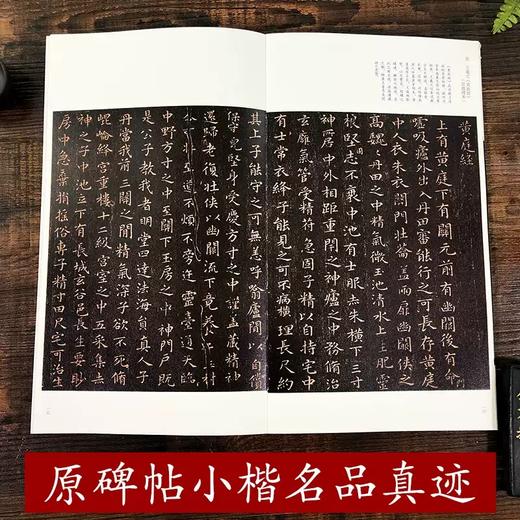 黄庭經
上有黄庭下有關元前有幽闕後有命門
嘘吸廬外出入丹田審能行之可長存黄庭
中人衣朱衣關門壯籥蓋兩扉幽闕俠之
高巍巍丹田之中精氣微玉池清水上生肥靈
根堅志不衰中池有士服赤朱横下三寸
神所居中外相距重閉之神廬之中務脩治
玄靡氣管受精符急固子精以自持宅中
有士常衣絳子能見之可不病横理長尺約
其上子能守之可無恙呼噏廬間以自償
保守完堅身受慶方寸之中謹蓋藏精神
還歸老復壯俠以幽闕流下竟養子玉樹
可壯至道不煩不旁迕靈臺通天臨
中野方寸之中至關下玉房之中神門户既
是公子教我者明堂四達法海員真人子
丹當我前三關之間精氣深子欲不死脩
崐崘絳宮重樓十二級宮室之中五采集赤
神之子中池立下有長城玄谷邑長生要眇
房中急棄捐搖俗專子精寸田尺宅可治生
原碑帖小楷名品真迹